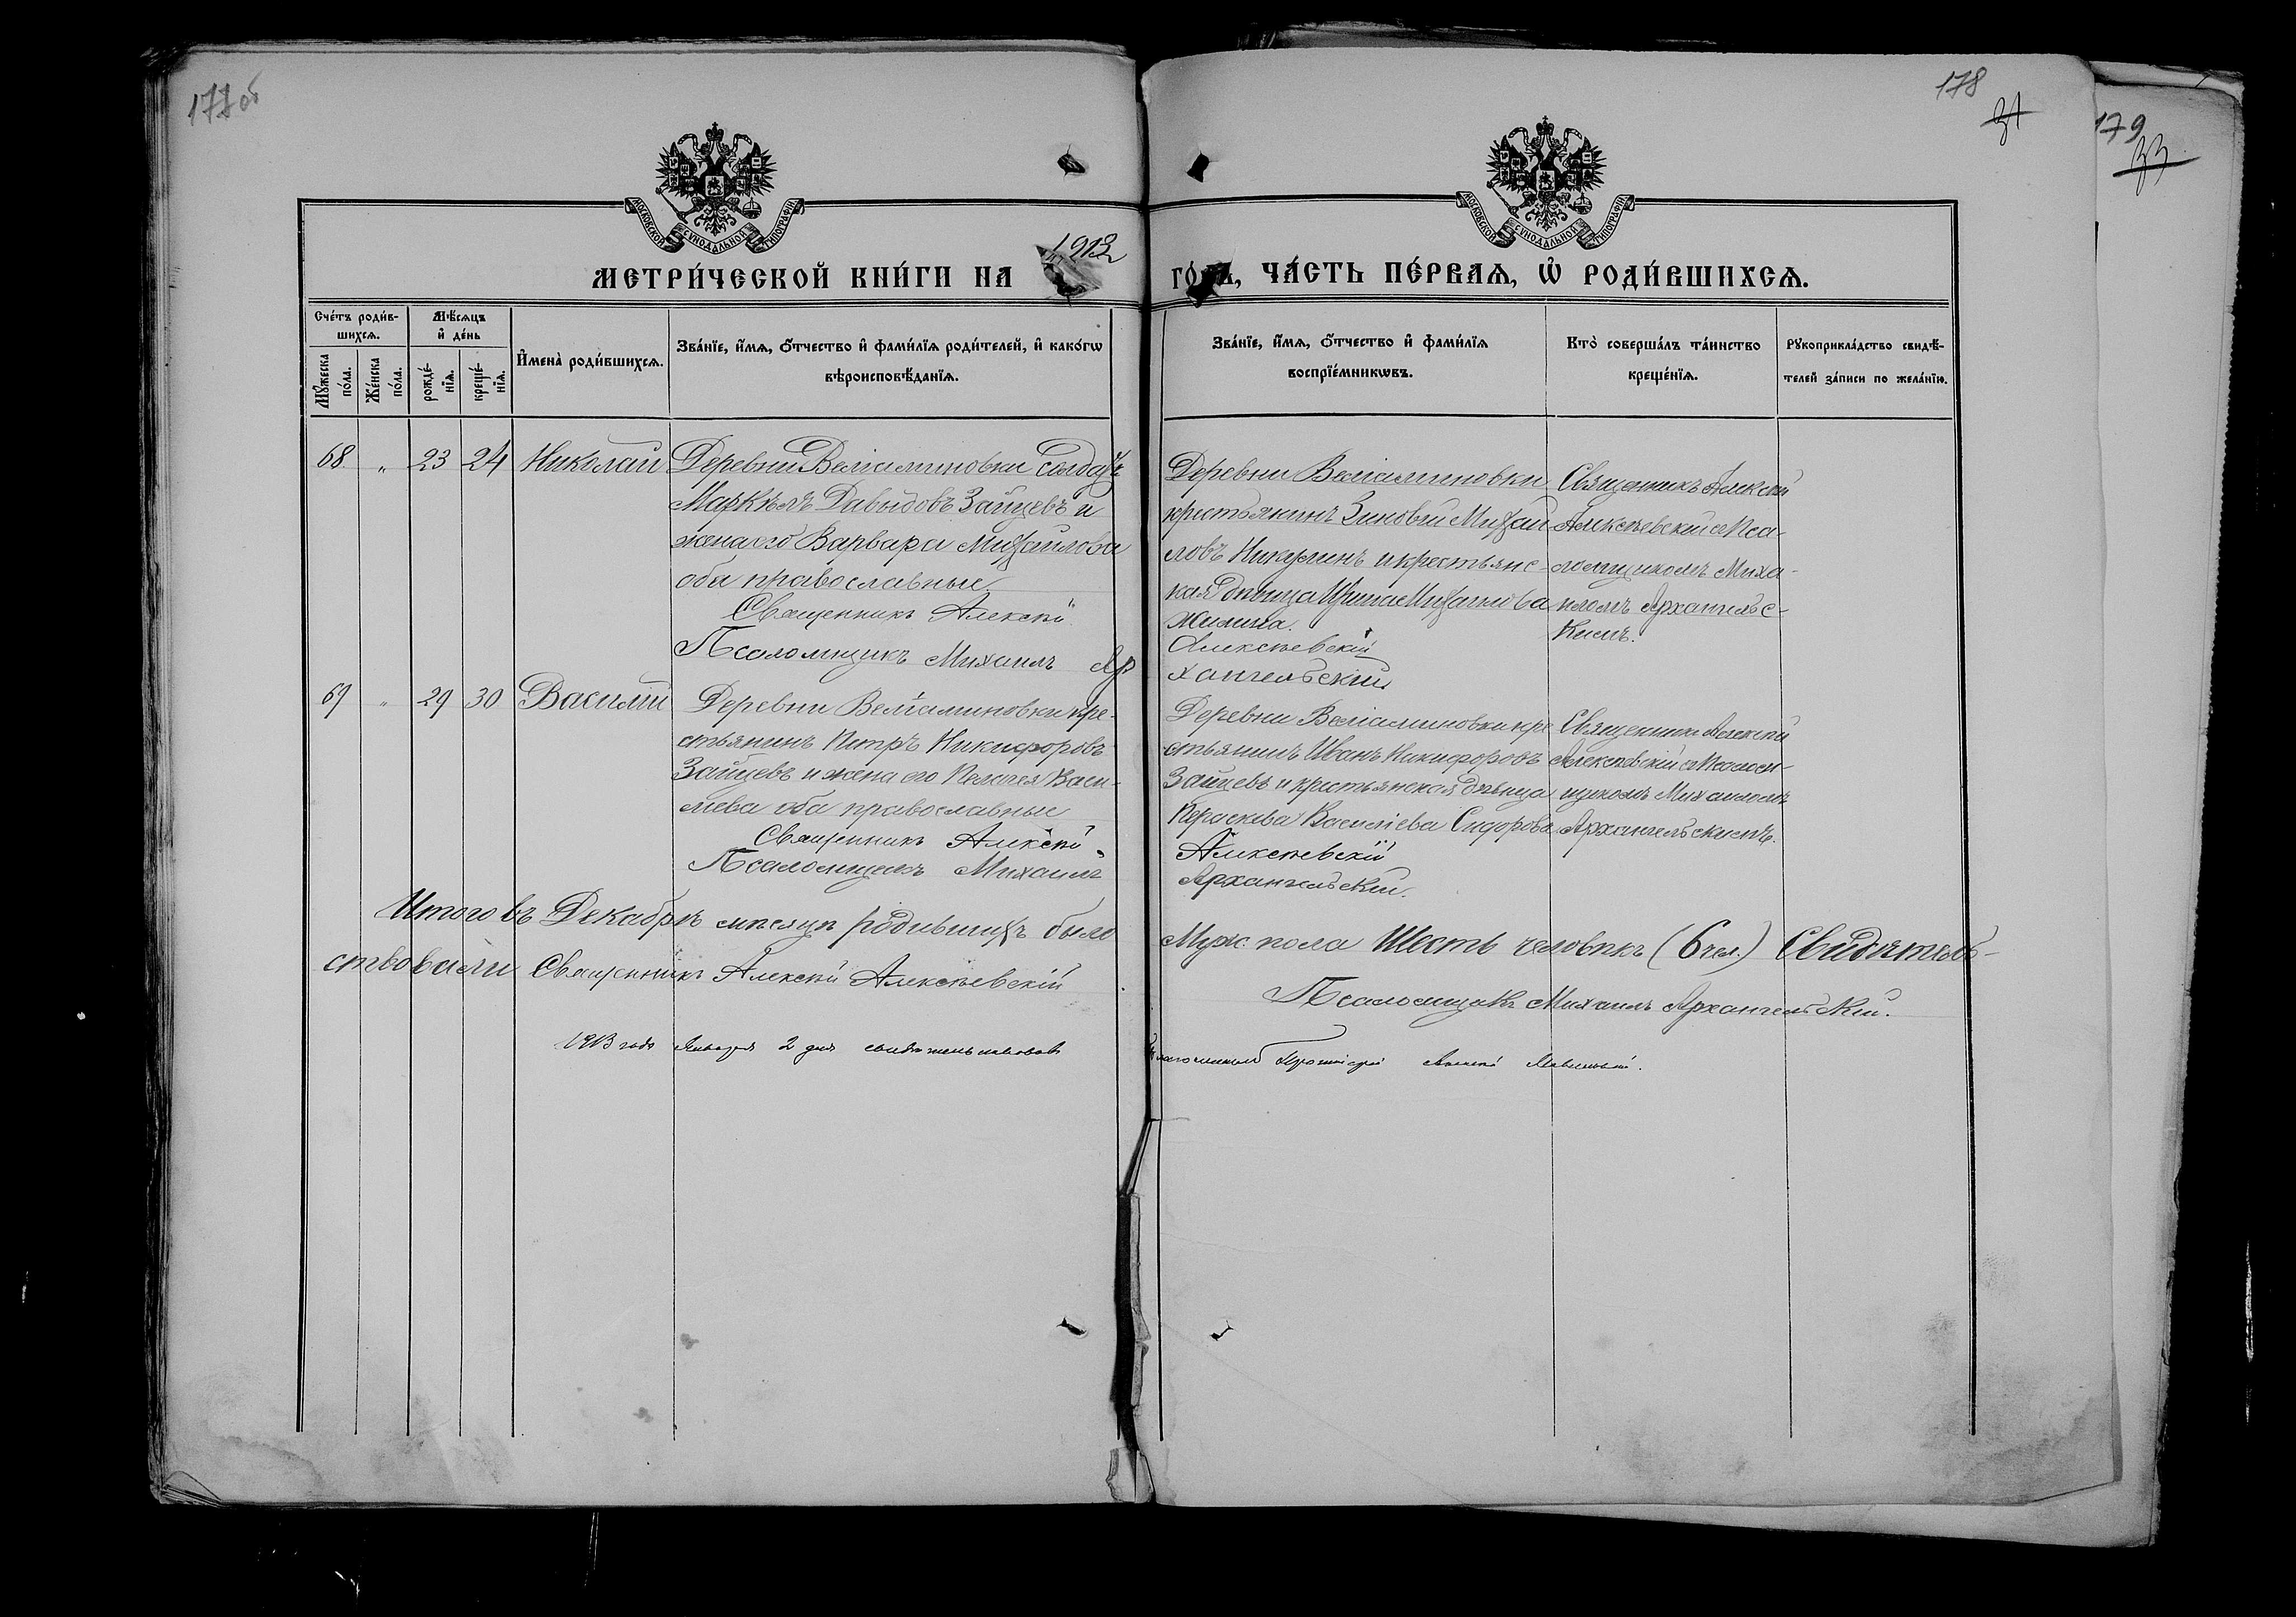 177 об
178
31
179
33
МОСКОВСКОЙ СѴНОДАЛЬНОЙ ТИПОГРАФІИ
МОСКОВСКОЙ СѴНОДАЛЬНОЙ ТИПОГРАФІИ
1912
МЕТРИ́ЧЕСКОЙ КНИ́ГИ НА
ГО́ДЪ, ЧА́СТЬ ПЕ́РВАѦ, Ѡ҆ РОДИ́ВШИХСѦ.
Сче́тъ роди́в-
шихсѧ.
Мꙋ́жеска
по́ла.
Же́нска
по́ла.
Мѣ́сѧцъ
и҆ де́нь
рожде́-
нїѧ.
креще́-
нїѧ.
И҆мена̀ роди́вшихсѧ.
Зва́нїе, и҆́мѧ, ѻ҆́тчество и҆ фами́лїѧ роди́телей, и҆ како́гѡ
вѣроисповѣ́данїѧ.
Зва́нїе, и҆́мѧ, ѻ҆́тчество и҆ фами́лїѧ
воспрїе́мникѡвъ.
Кто̀ соверша́лъ та́инство
креще́нїѧ.
Рꙋкоприкла́дство свидѣ́-
телей за́писи по жела́нїю.
68. „ 23 24 Николай
Деревни Веліаминовки солдатъ
Маркелъ Давыдовъ Зайцевъ и
жена его Варвара Михайлова
оба православные.
Священникъ Алексій
Псаломщикъ Михаилъ Ар
Деревни Веліаминовки
крестьянинъ Зиновій Михай
ловъ Никулинъ и крестьянс-
кая дѣвица Ирина Михайлова
Жилина.
Алексѣевскій
хангельскій
Священникъ Алексій
Алексѣевскій с Пса-
ломщикомъ Миха-
иломъ Архангельс-
кимъ.
69 „ 29 30 Василій
Деревни Веліаминовки кре-
стьянинъ Петръ Никифоровъ
Зайцевъ и жена его Пелагея Васи-
льева оба православные
Священникъ Алексій
Псаломщикъ Михаилъ
Деревни Веліаминовки кре
стьянинъ Иванъ Никифоровъ
Зайцевъ и крестьянская дѣвица
Параскева Васильева Сидорова
Алексѣевскій
Архангельскій.
Священникъ Алексій
Алексѣевскій с Псалом-
щикомъ Михаиломъ
Архангельскимъ.
Итого въ Декабрѣ мѣсяцѣ родившихъ было
Муж. пола Шесть человѣкъ (6 чел.) Свидѣтель-
ствовали Священникъ Алексій Алексѣевскій
Псаломщикъ Михаилъ Архангельскій.
1913 года Января 2 дня свидѣтельствовалъ
Благочинный Протоіерей Алексій